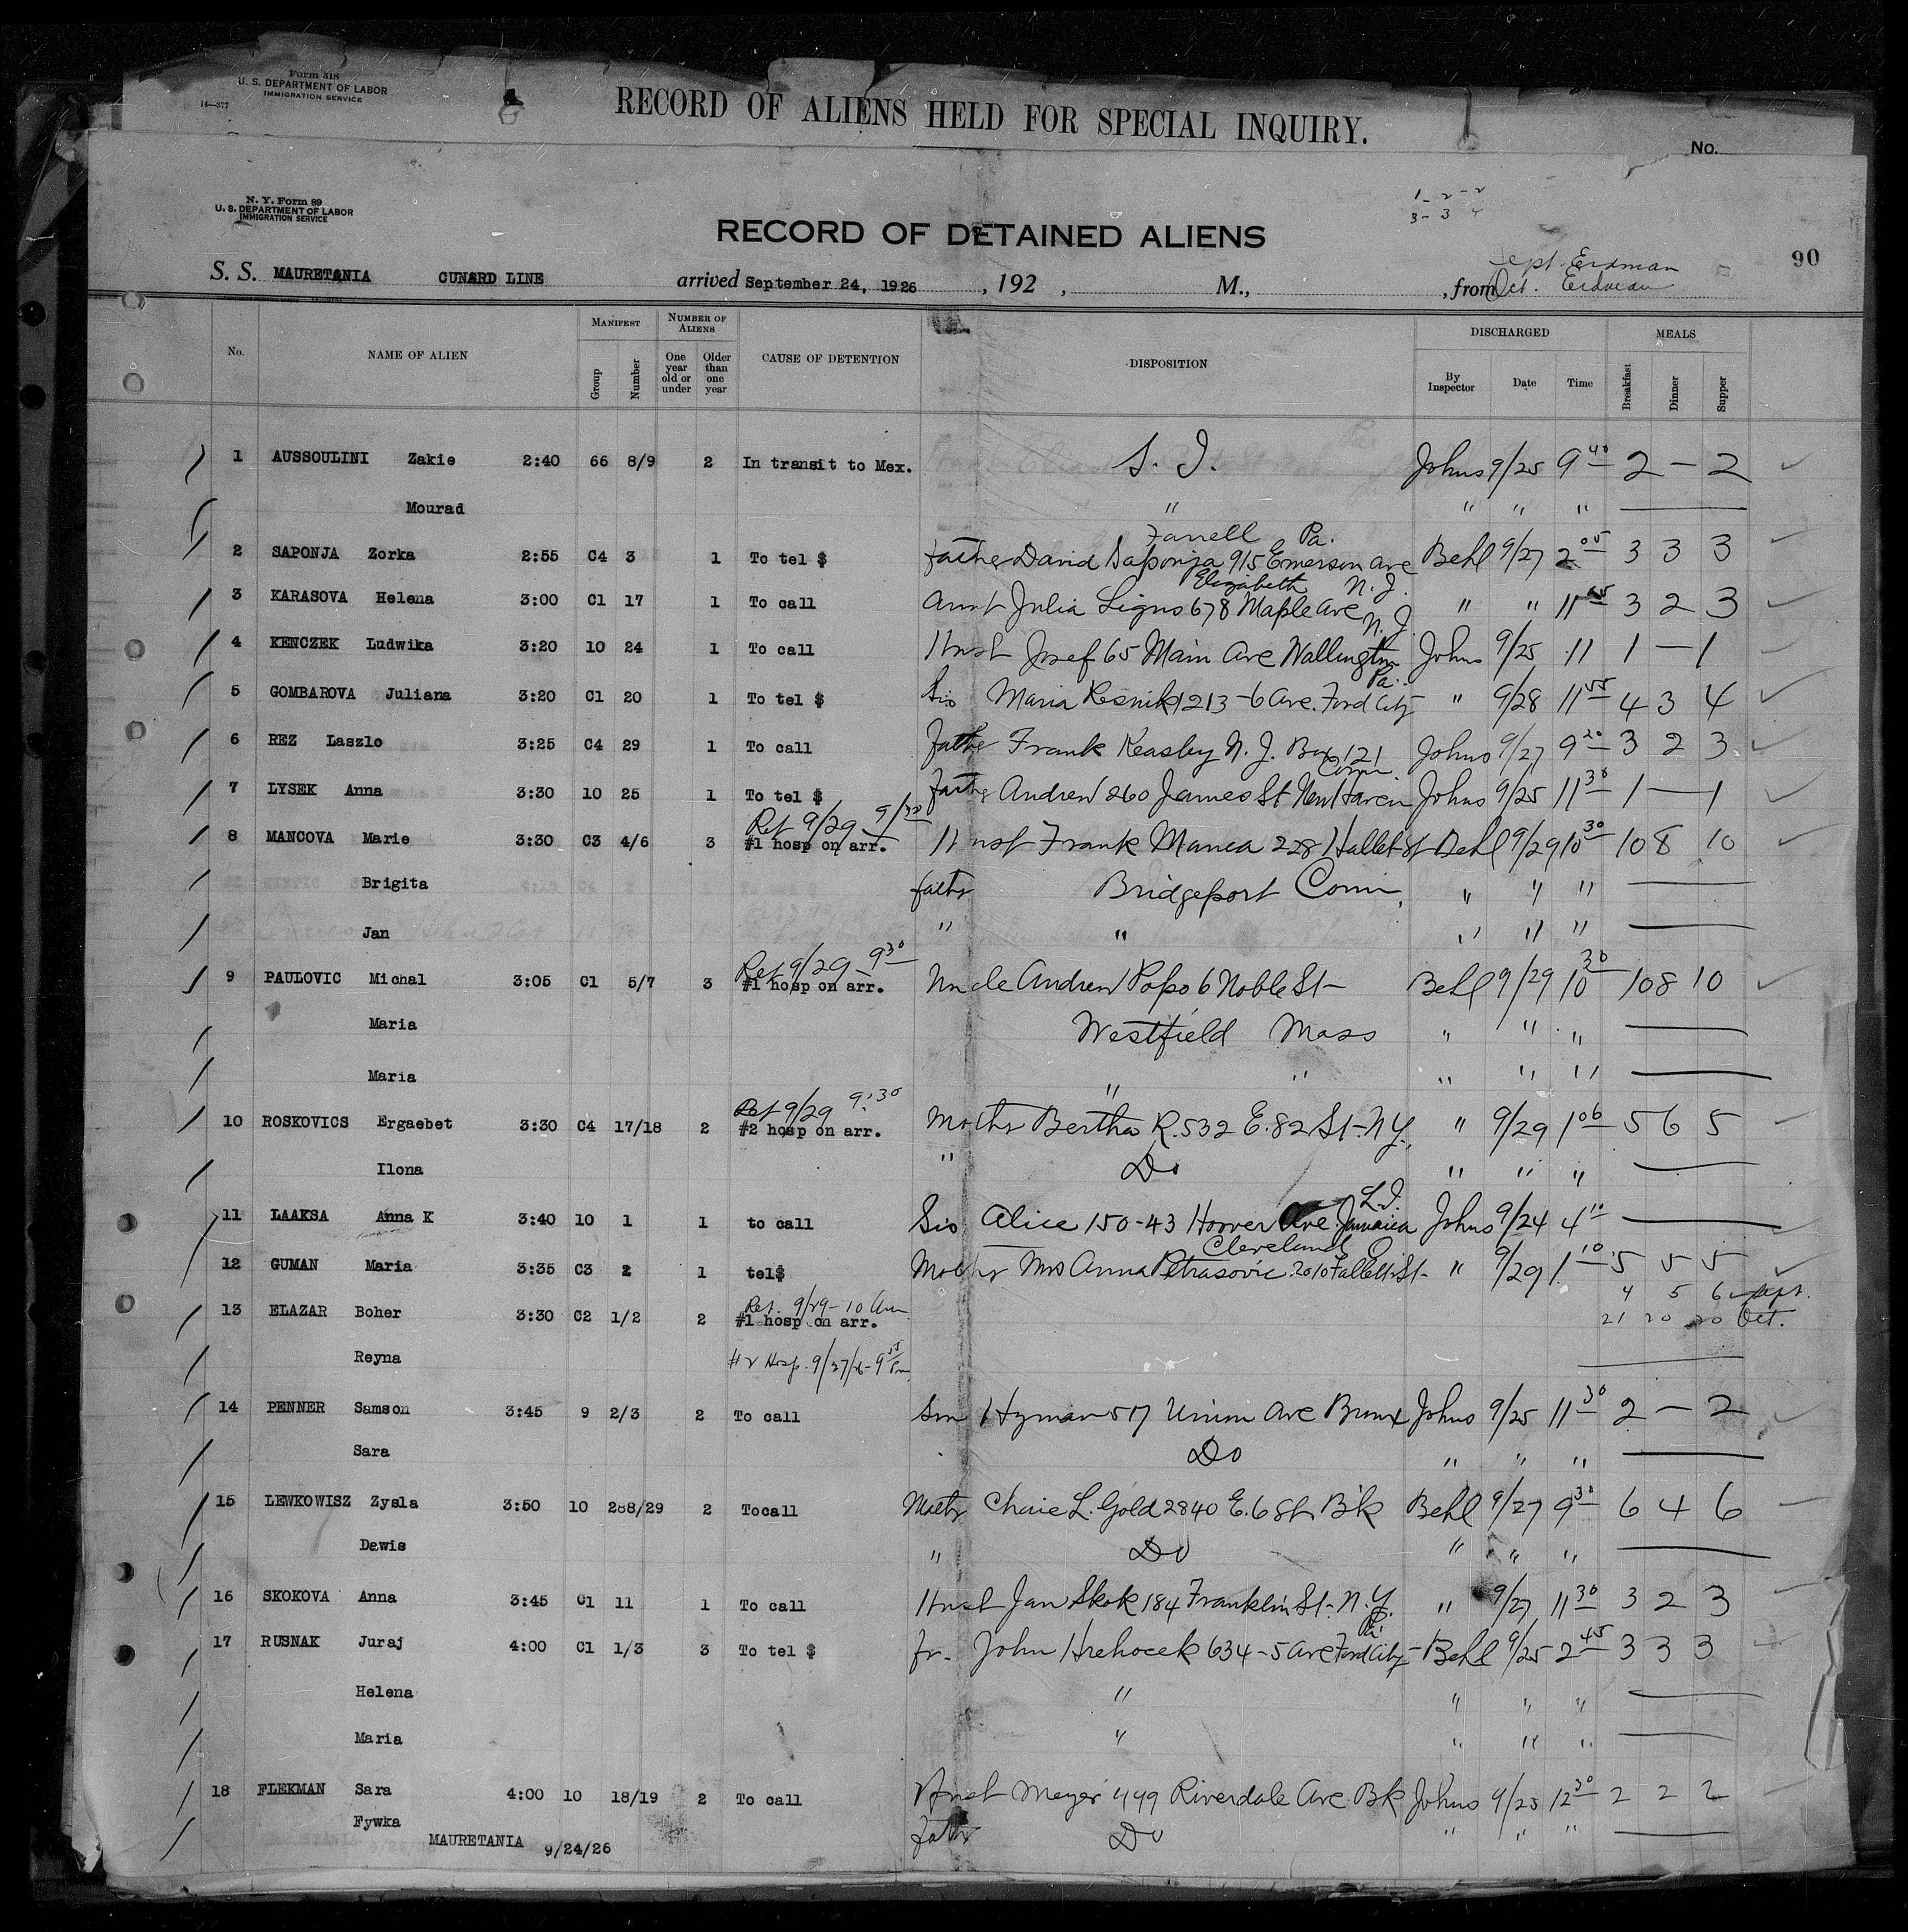 Form 518
U. S. DEPARTMENT OF LABOR
IMMIGRATION SERVICE
14—377
RECORD OF ALIENS HELD FOR SPECIAL INQUIRY.
No.
N. Y. Form 89
U. S. DEPARTMENT OF LABOR
IMMIGRATION SERVICE
1 - 2 - 2
3 - 3 4
RECORD OF DETAINED ALIENS
90
Sept. Erdman
S. S. MAURETANIA CUNARD LINE arrived September 24, 1926 , 192 , M., , from Oct. Erdman
No. NAME OF ALIEN MANIFEST NUMBER OF ALIENS CAUSE OF DETENTION DISPOSITION DISCHARGED MEALS
Group Number One year old or under Older than one year By Inspector Date Time Breakfast Dinner Supper
1 AUSSOULINI Zakie 2:40 66 8/9 2 In transit to Mex. S. I. Johns 9/25 9 40 2 — 2
Mourad " " " "
Farrell Pa.
2 SAPONJA Zorka 2:55 C4 3 1 To tel $ father David Saponja 915 Emerson ave Behl 9/27 2 05 3 3 3
Elizabeth N. J.
3 KARASOVA Helena 3:00 C1 17 1 To call aunt Julia Ligus 678 Maple ave " " 11 45 3 2 3
N. J.
4 KENCZEK Ludwika 3:20 10 24 1 To call Husb Josef 65 Main ave Wallington Johns 9/25 11 1 — 1
Pa.
5 GOMBAROVA Juliana 3:20 C1 20 1 To tel $ Sis Maria Resnik 1213 - 6 ave. Ford City " 9/28 11 55 4 3 4
6 REZ Laszlo 3:25 C4 29 1 To call father Frank Keasby N. J. Box 121 Johns 9/27 9 20 3 2 3
Conn.
7 LYSEK Anna 3:30 10 25 1 To tel $ father Andrew 260 James St New Haven Johns 9/25 11 30 1 — 1
Ret 9/29 9/30
8 MANCOVA Marie 3:30 C3 4/6 3 #1 hosp on arr. Husb Frank Manca 228 Hallet St Behl 9/29 10 30 10 8 10
Brigita father Bridgeport Conn. " " "
Jan " " " " "
Ret 9/29 — 9 30
9 PAULOVIC Michal 3:05 C1 5/7 3 #1 hosp on arr. Uncle Andrew Popo 6 Noble St — Behl 9/29 10 30 10 8 10
Maria Westfield Mass " " "
Maria " " " " "
Ret 9/29 9:30
10 ROSKOVICS Ergaebet 3:30 C4 17/18 2 #2 hosp on arr. Mother Bertha R. 532 E. 82 St - N Y. " 9/29 1 06 5 6 5
Ilona " Do " " "
L. I.
11 LAAKSA Anna K 3:40 10 1 1 to call Sis Alice 150-43 Hoover Ave Jamaica Johns 9/24 4 10
Cleveland O
12 GUMAN Maria 3:35 C3 2 1 tel$ Mother Mrs Anna Petrasovic 2010 Fallett St - " 9/29 1 10 5 5 5
4 5 6 Sept.
Ret. 9/29 - 10 Am
13 ELAZAR Boher 3:30 C2 1/2 2 #1 hosp on arr. 21 20 20 Oct.
Reyna #2 Hosp. 9/27/26 - 9 55 Pm
14 PENNER Samson 3:45 9 2/3 2 To call Son Hyman 517 Union Ave Bronx Johns 9/25 11 30 2 — 2
Sara Do " " "
15 LEWKOWISZ Zysla 3:50 10 288/29 2 Tocall Mother Chaie L. Gold 2840 E. 6 St. B'k Behl 9/27 9 30 6 4 6
Dewis " Do " " "
16 SKOKOVA Anna 3:45 C1 11 1 To call Husb Jan Skok 184 Franklin St. N. Y. " 9/27 11 30 3 2 3
Pa.
17 RUSNAK Juraj 4:00 C1 1/3 3 To tel $ fr. John Hrehocek 634 - 5 ave Ford City - Behl 9/25 2 45 3 3 3
Helena " " " "
Maria " " " "
18 FLEKMAN Sara 4:00 10 18/19 2 To call Husb Meyer 449 Riverdale Ave Bk Johns 9/25 12 30 2 2 2
Fywka father Do " " "
MAURETANIA 9/24/26